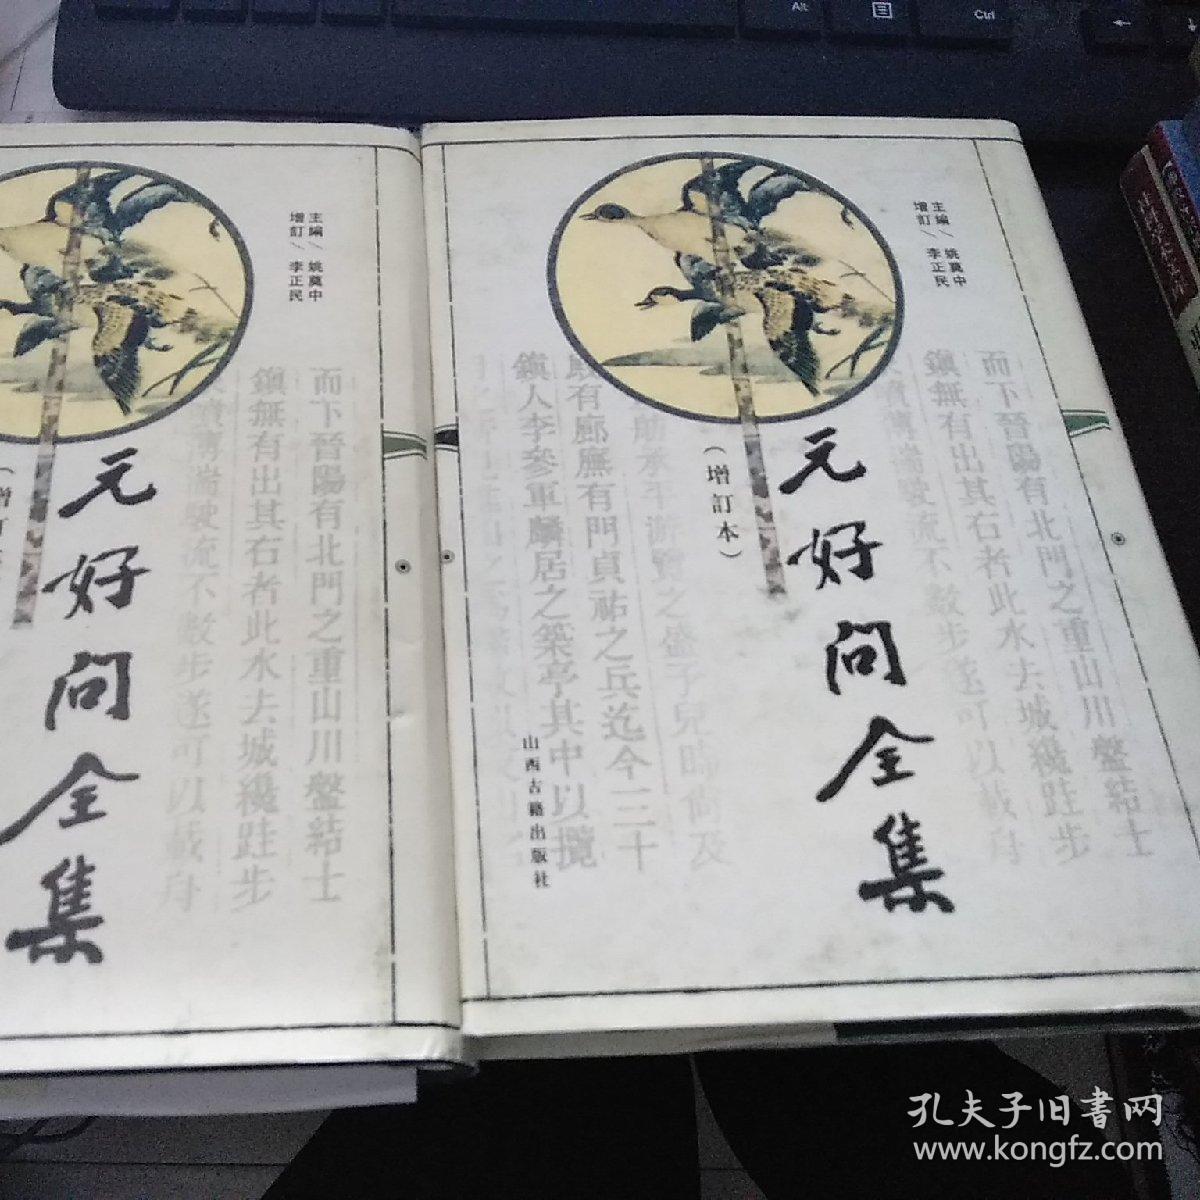 Alt
Ctrl
主編／姚奠中
增訂／李正民
而下晉陽有北門之重山川盤結士
鎮無有出其右者此水去城纔跬步
流不數步遂可以載舟
元好問全集
主編／姚奠中
增訂／李正民
（增訂本）
元好問全集
山西古籍出版社
而下晉陽有北門之重山川盤結士
鎮無有出其右者此水去城纔跬步
流不數步遂可以載舟
承平游覽之盛予兒時尚及
有廊廡有門貞祐之兵迄今三十
鎮人李參軍麟居之築亭其中以攬
孔夫子旧書网
www.kongfz.com